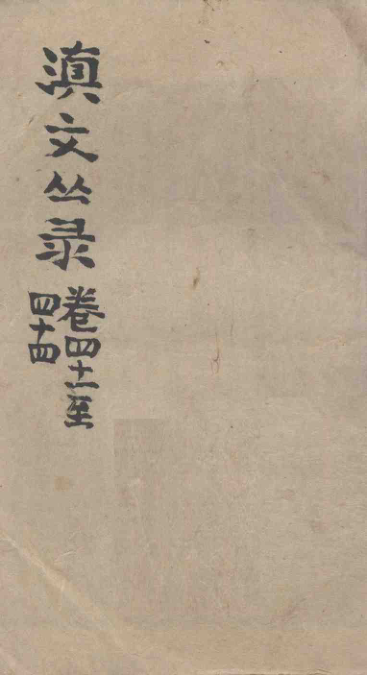 滇文丛录
卷四十一至
四十四